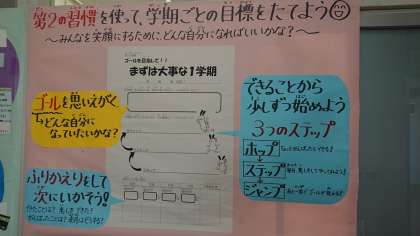 第2の習慣を使って、学期ごとの目標をたてよう
〜みんなを笑顔にするために、どんな自分になればいいかな?〜
ゴールを目指して!!
まずは大事な1学期
ゴールを思いえがく
どんな自分に
なっていたいかな?
できることから
少しずつ始めよう
3つのステップ
ホップ
ステップ
ジャンプ
ふりかえりをして
次にいかそう!